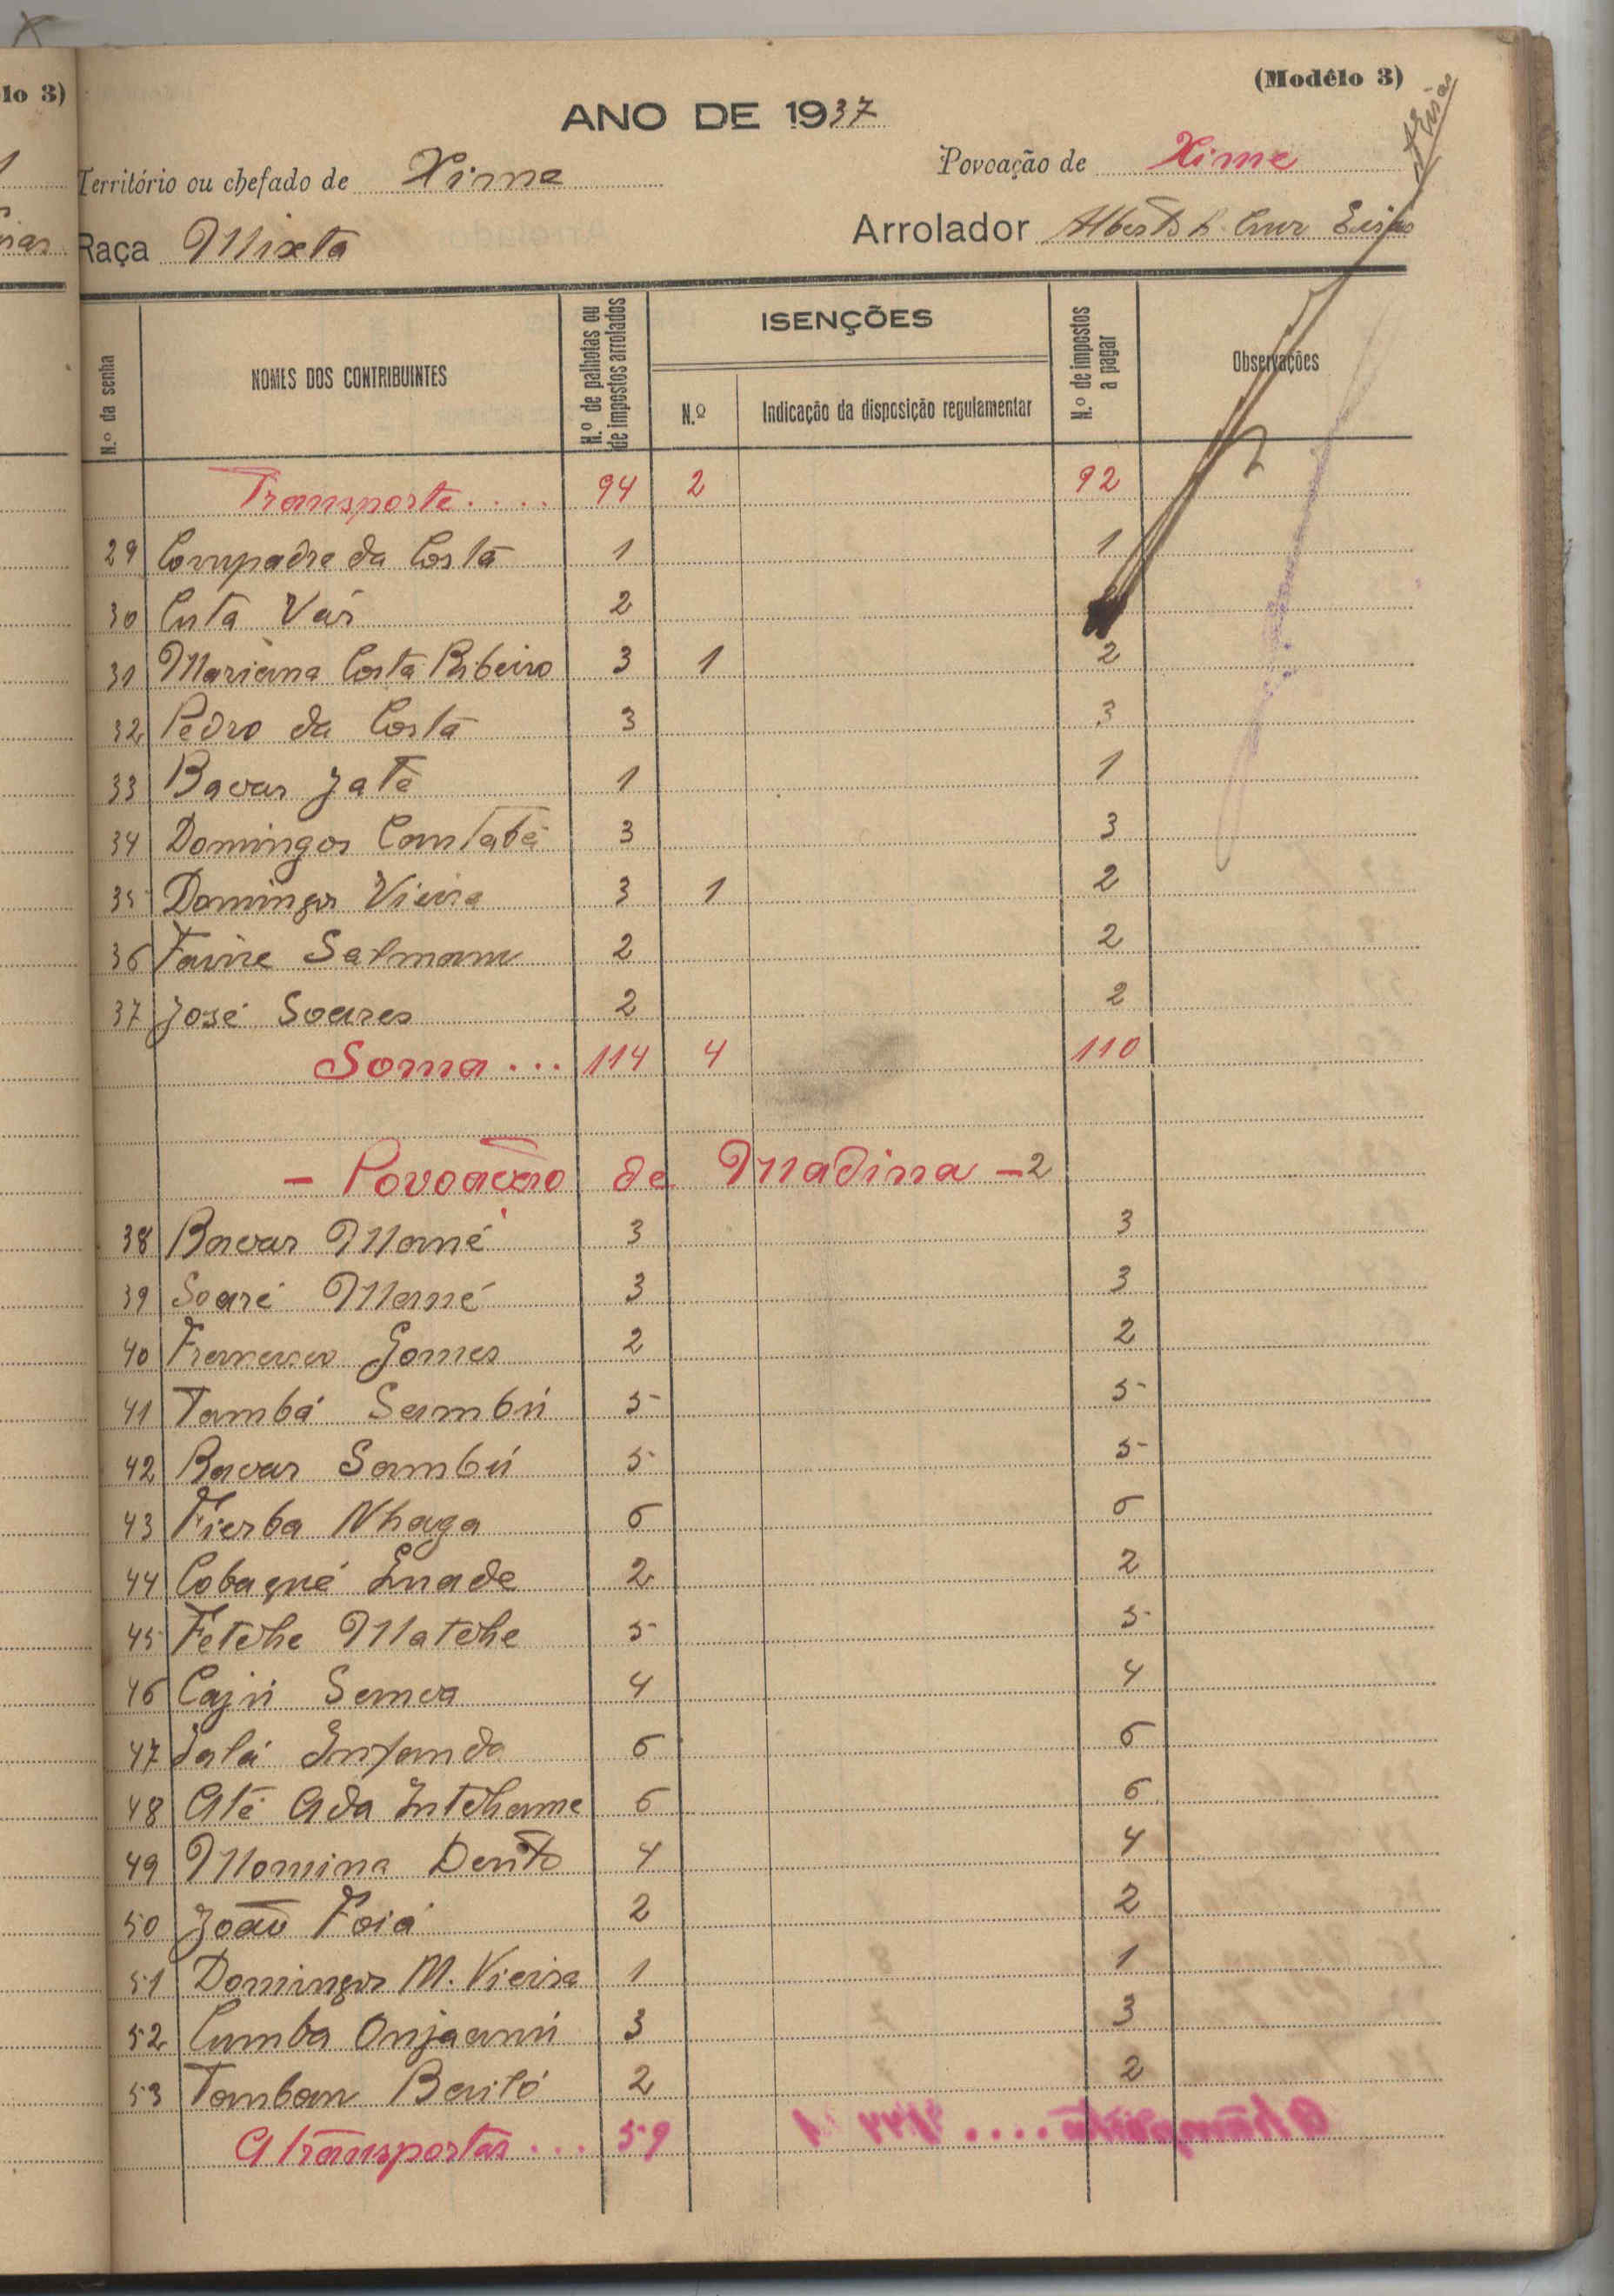 lo 3)
(Modêlo 3)
ANO DE 1937
Território ou chefado de Xime
Povoação de Xime
Raça Mixta
Arrolador Alberto L. Cruz
N.º da senha
NOMES DOS CONTRIBUINTES
N.º de palhotas ou de impostos arrolados
ISENÇÕES
N.º
Indicação da disposição regulamentar
N.º de impostos a pagar
Observações
Transporte.... 94 2 92
29 Compadre da Costa 1 1
30 Cuta Vás 2
31 Mariana Costa Ribeiro 3 1 2
32 Pedro da Costa 3 3
33 Bacar Jaté 1 1
34 Domingos Comtabé 3 3
35 Domingos Vieira 3 1 2
36 Faire Salmam 2 2
37 José Soares 2 2
Soma ... 114 4 110
- Povoação de Madina - 2
38 Bacar Mané 3 3
39 Soaré Mané 3 3
40 Francisco Gomes 2 2
41 Tambá Sambú 5 5
42 Bacar Sambú 5 5
43 Fierba Nhaga 6 6
44 Cobaqué Inade 2 2
45 Fetche Matche 5 5
46 Cajú Semea 4 4
47 Jalá Infanda 6 6
48 Até Ada Intchame 6 6
49 Momina Dento 4 4
50 João Foiá 2 2
51 Domingos M. Vieira 1 1
52 Cumba Onjaanú 3 3
53 Tambam Bariló 2 2
A transportar... 59